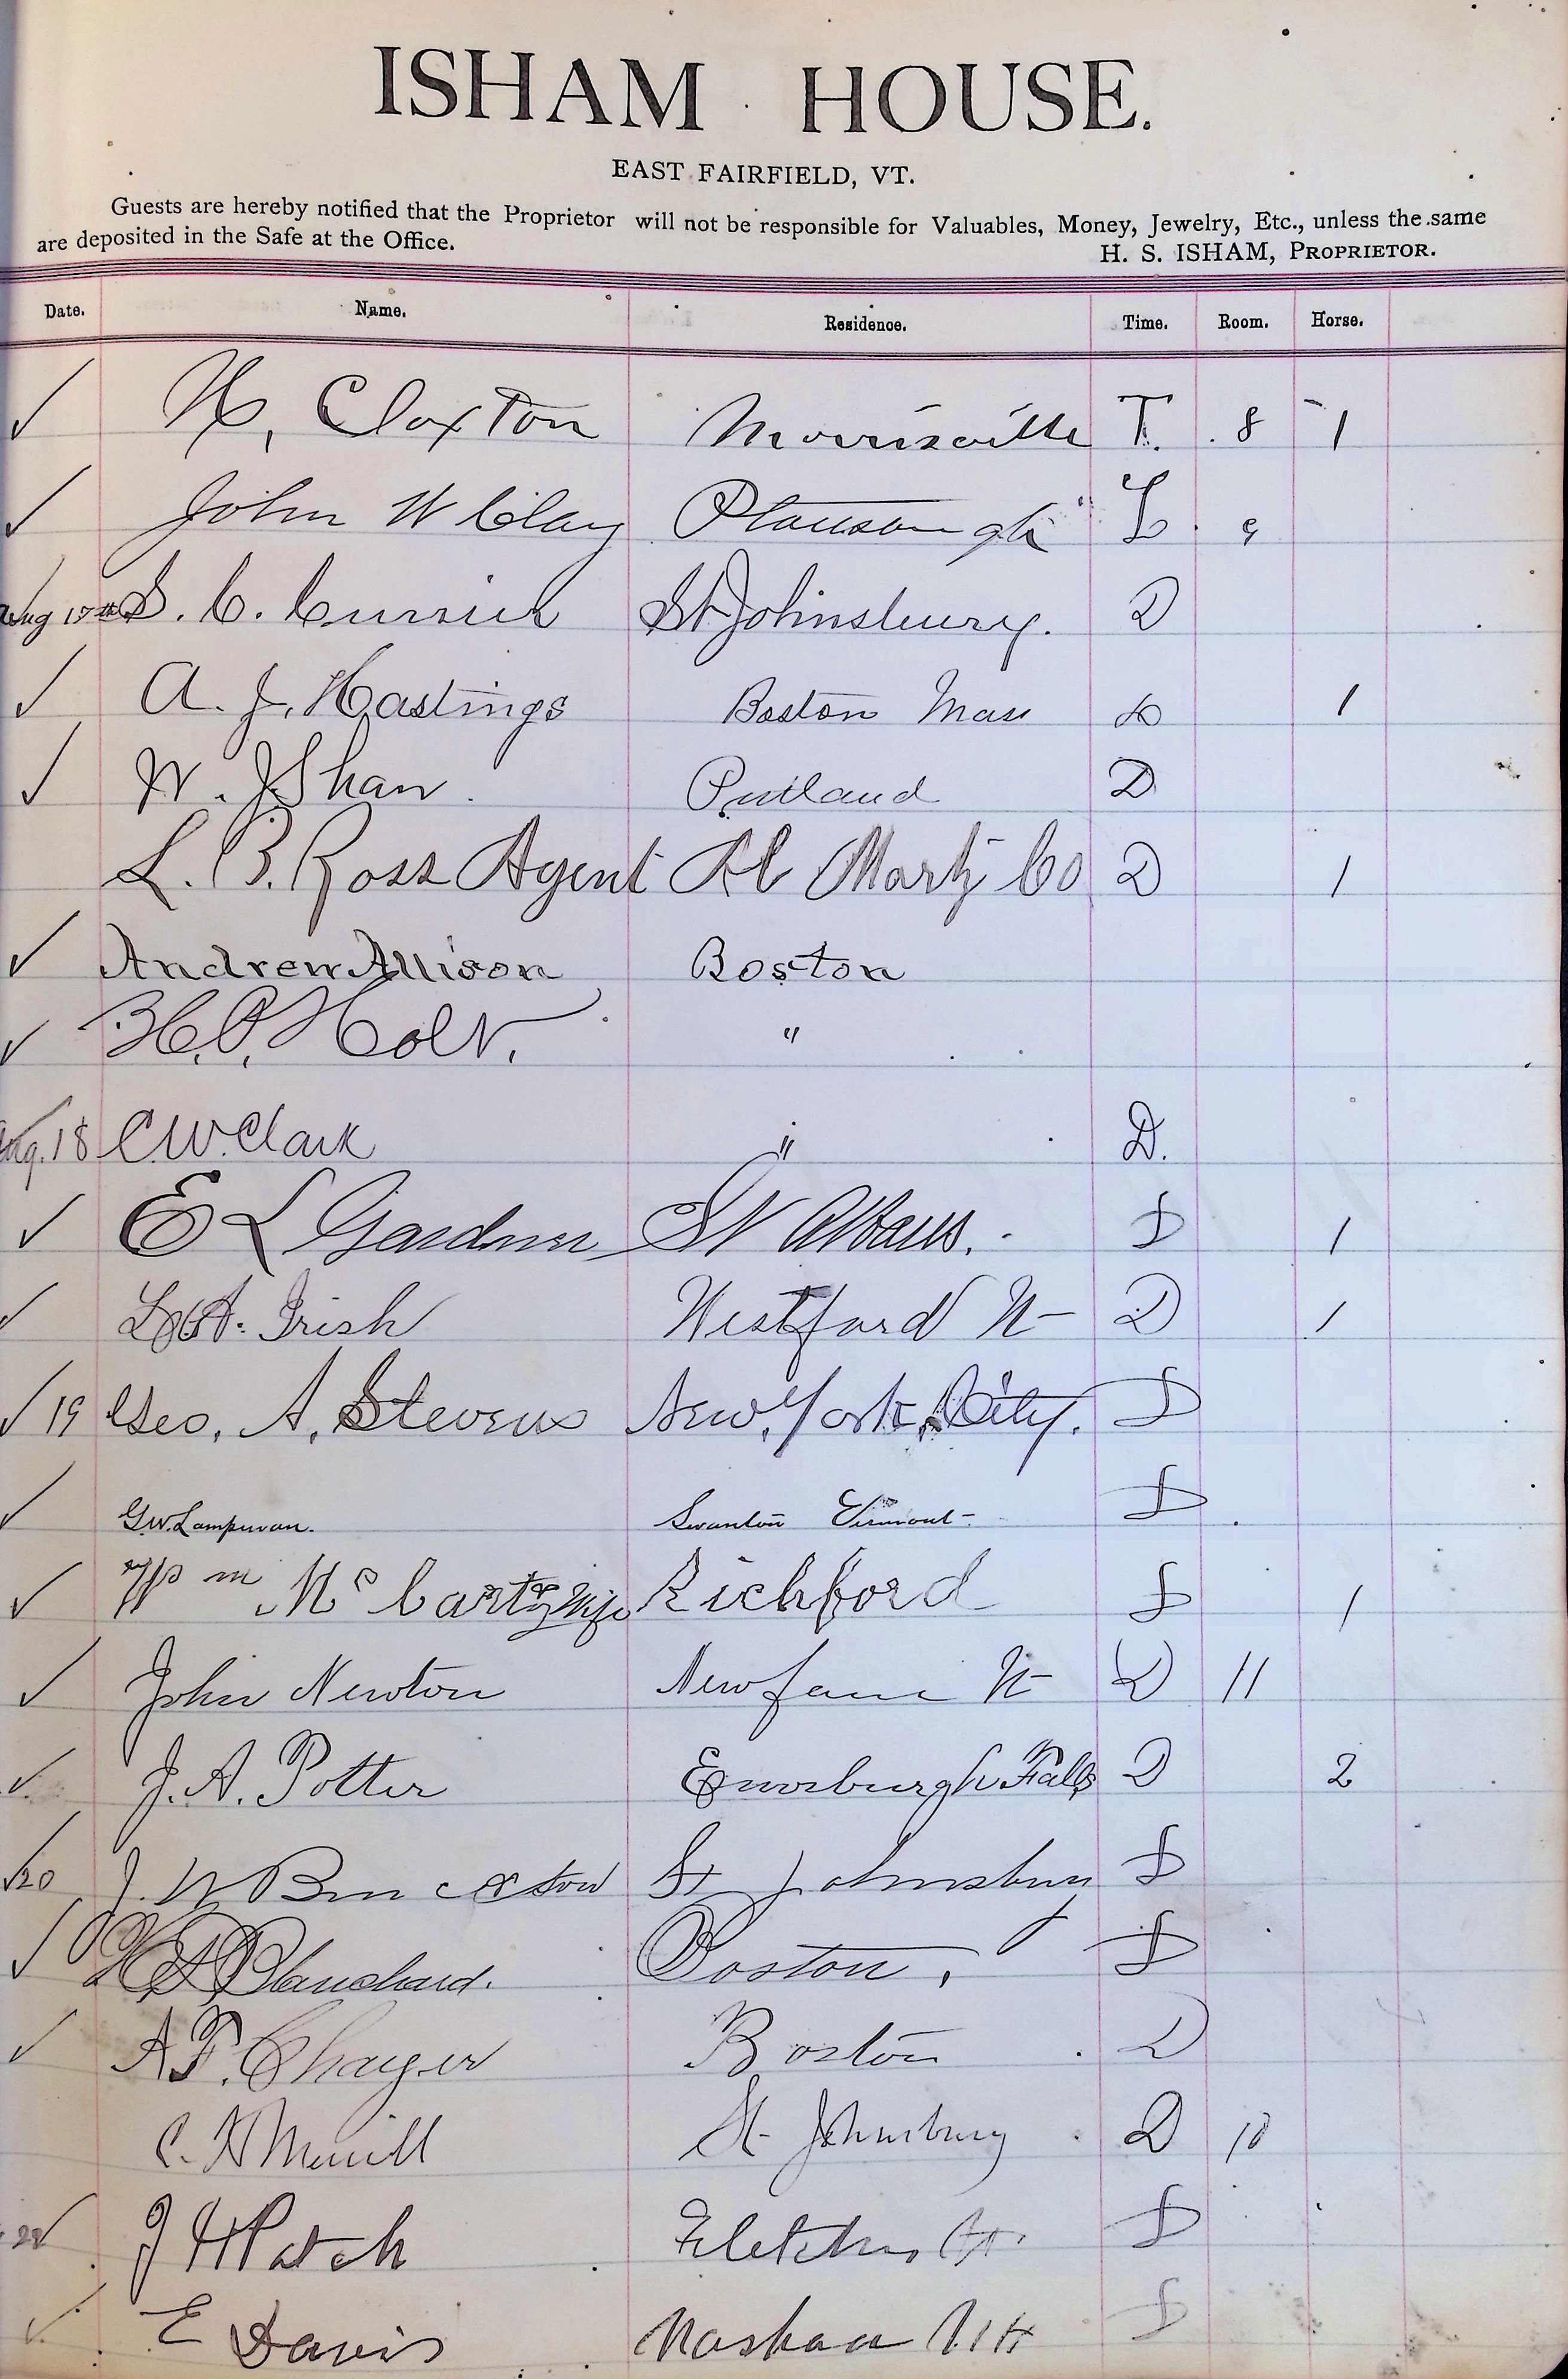 ISHAM HOUSE.
EAST FAIRFIELD, VT.
Guests are hereby notified that the Proprietor will not be responsible for Valuables, Money, Jewelry, Etc., unless the same
are deposited in the Safe at the Office.
H. S. ISHAM, PROPRIETOR.
Date. Name. Residence. Time. Room. Horse.
✓ Claxton Morrisville T. 8 1
✓ John W Clay 9
Aug 17th S. C. Currier St Johnsbury. D
✓ A. J. Hastings Boston Mass 1
✓ W. J Shaw. Rutland D
L. B. Ross Agent Co D 1
✓ Andrew Allison Boston
✓ H. P. Holt. "
Aug. 18 C. W. Clark " D.
✓ E L Gardner St Albans. D 1
✓ Irish Westford Vt D 1
✓ 19 Geo. A. Stevens New York City. D
✓ G. W. Swanton Vermont D
✓ Wm Mc Carty & Wife Richford 1
✓ John Newton Newfane Vt D 11
✓ J. A. Potter Enosburgh Falls D 2
✓ 20 J. W St Johnsbury D
✓ Blanchard. Boston, D
✓ A F. Boston D
C. H Merrill St Johnsbury D 10
22 ✓ J H Patch Fletcher Vt. D
✓ E Davis Nashua N H D